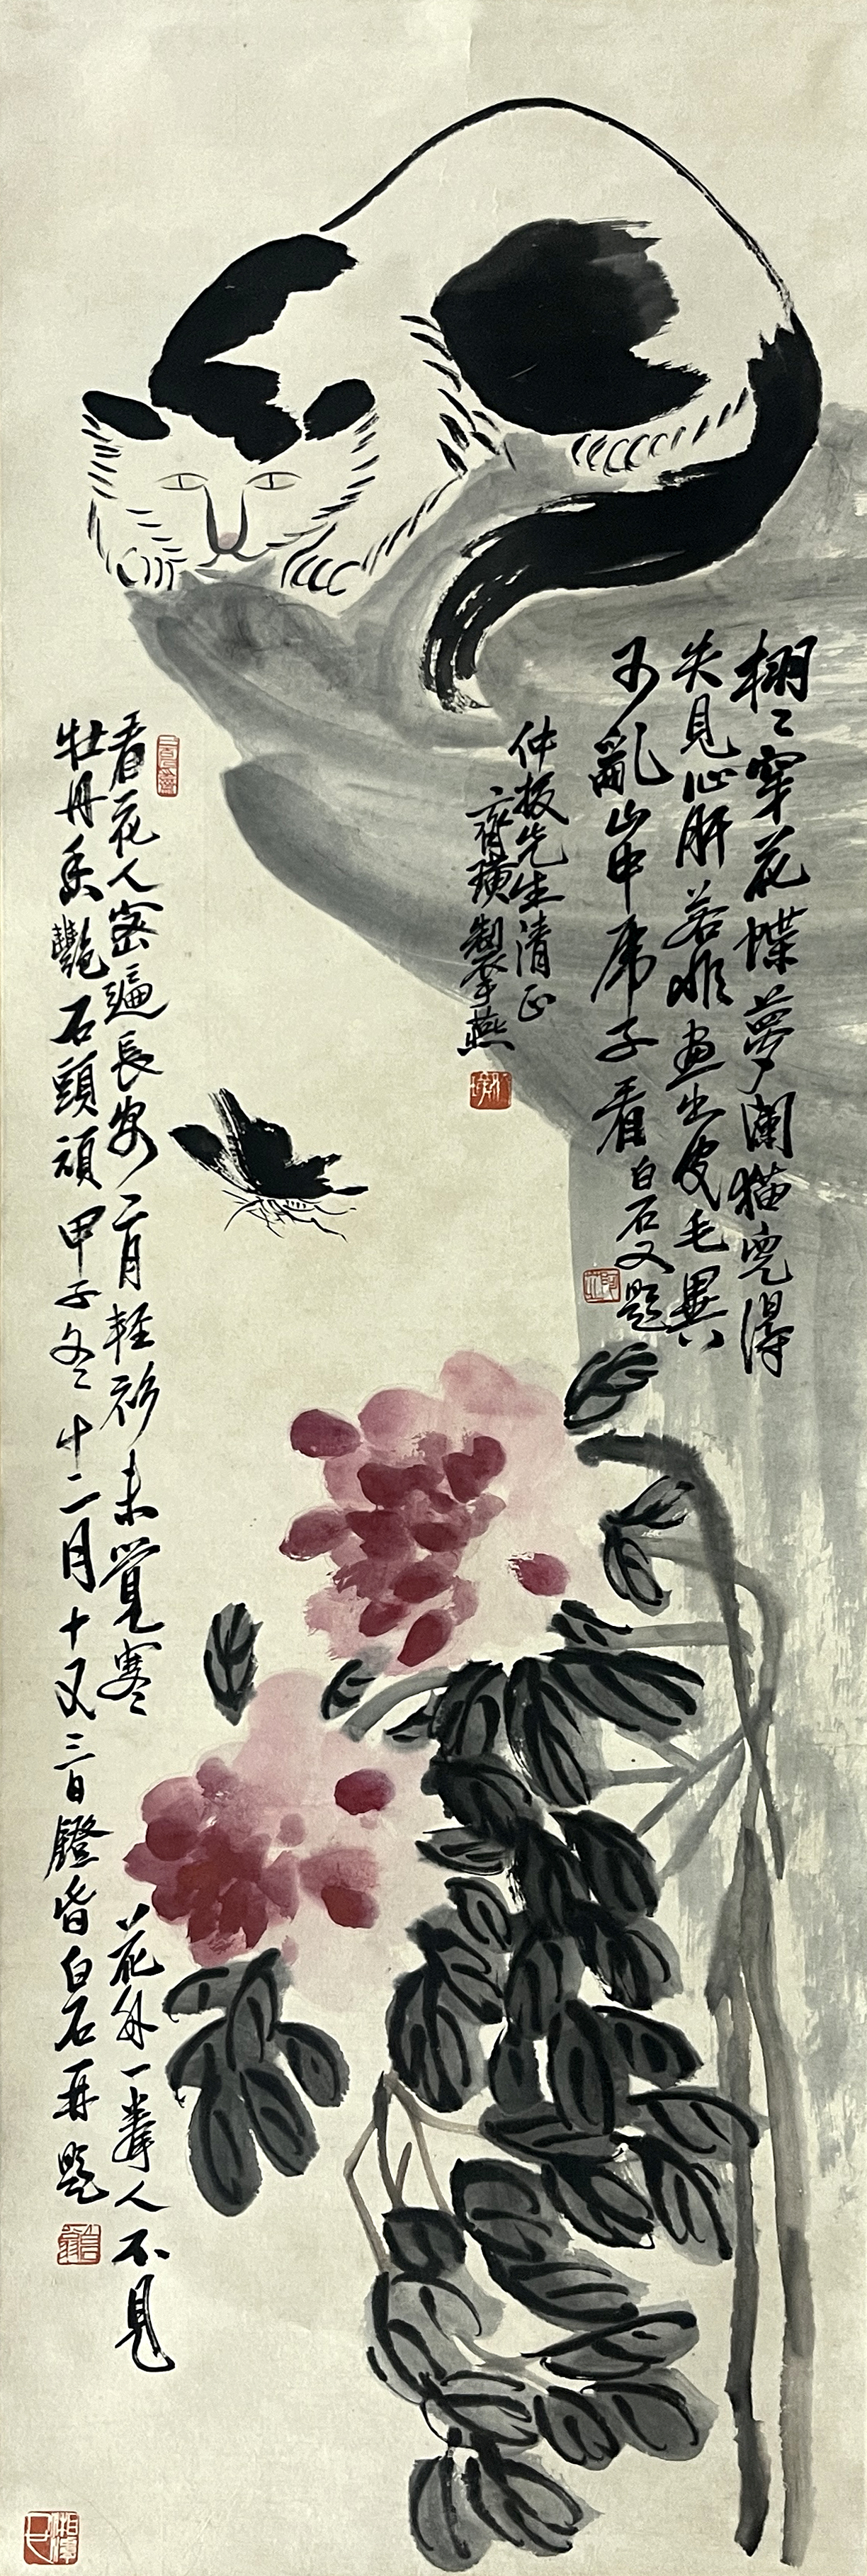 栩〻穿花蝶夢闌猫児得
失見心肝若非畫出皮毛異
不亂山中虎子看白石又題
仲珊先生清正
齊璜製于燕
看花人密逼長安二月輕衫未覺寒花外一拳人不見
牡丹香艷石頭頑甲子冬十二月十又三日鐙昏白石再題